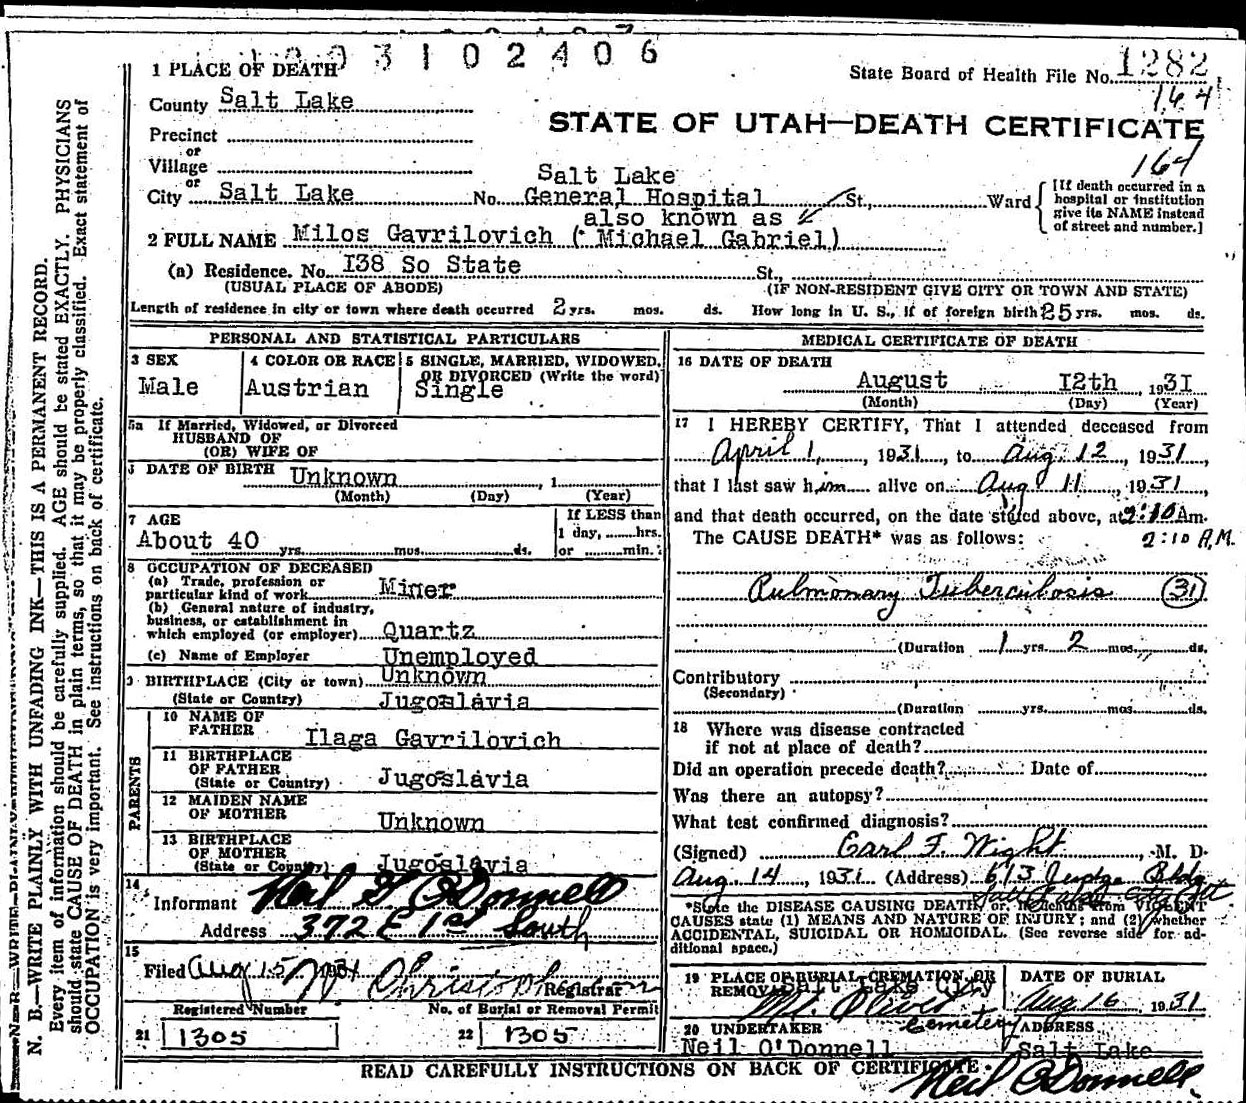 3 1 0 2 4 0 6
1 PLACE OF DEATH
State Board of Health File No. 1282
164
County Salt Lake
STATE OF UTAH—DEATH CERTIFICATE
Precinct
or
Village
164
or
City Salt Lake No. Salt Lake General Hospital St., Ward
[If death occurred in a hospital or institution give its NAME instead of street and number.]
also known as
2 FULL NAME Milos Gavrilovich (Michael Gabriel)
(a) Residence. No. I38 So State St.,
(USUAL PLACE OF ABODE) (IF NON-RESIDENT GIVE CITY OR TOWN AND STATE)
Length of residence in city or town where death occurred 2 yrs. mos. ds. How long in U. S., if of foreign birth 25 yrs. mos. ds.
PERSONAL AND STATISTICAL PARTICULARS
3 SEX
Male
4 COLOR OR RACE
Austrian
5 SINGLE, MARRIED, WIDOWED, OR DIVORCED (Write the word)
Single
5a If Married, Widowed, or Divorced
HUSBAND OF
(OR) WIFE OF
6 DATE OF BIRTH Unknown , 1
(Month) (Day) (Year)
7 AGE
About 40 yrs. mos. ds.
If LESS than
1 day, hrs.
or min.
8 OCCUPATION OF DECEASED
(a) Trade, profession or
particular kind of work Miner
(b) General nature of industry,
business, or establishment in
which employed (or employer) Quartz
(c) Name of Employer Unemployed
9 BIRTHPLACE (City or town) Unknown
(State or Country) Jugoslavia
PARENTS
10 NAME OF
FATHER Ilaga Gavrilovich
11 BIRTHPLACE
OF FATHER
(State or Country) Jugoslavia
12 MAIDEN NAME
OF MOTHER Unknown
13 BIRTHPLACE
OF MOTHER
(State or Country) Jugoslavia
14
Informant Neil O'Donnell
Address 372 E 1st South
15
Filed Aug 15 1931 Christopherson
Registrar
Registered Number No. of Burial or Removal Permit
21 1305 22 1305
MEDICAL CERTIFICATE OF DEATH
16 DATE OF DEATH
August I2th 1931
(Month) (Day) (Year)
17 I HEREBY CERTIFY, That I attended deceased from
April 1, 1931, to Aug. 12, 1931,
that I last saw him alive on Aug 11, 1931,
and that death occurred, on the date stated above, at 2:10 Am.
The CAUSE DEATH* was as follows: 2:10 A.M.
Pulmonary Tuberculosis (31)
(Duration 1 yrs. 2 mos. ds.
Contributory
(Secondary)
(Duration yrs. mos. ds.
18 Where was disease contracted
if not at place of death?
Did an operation precede death? Date of
Was there an autopsy?
What test confirmed diagnosis?
(Signed) Earl F. Wight, M. D.
Aug. 14, 1931 (Address) 613 Judge Bldg
*State the DISEASE CAUSING DEATH, or, in deaths from VIOLENT
CAUSES state (1) MEANS AND NATURE OF INJURY; and (2) whether
ACCIDENTAL, SUICIDAL OR HOMICIDAL. (See reverse side for ad-
ditional space.)
19 PLACE OF BURIAL, CREMATION, OR
REMOVAL Salt Lake City
Mt. Olivet
Cemetery
DATE OF BURIAL
Aug 16 1931
20 UNDERTAKER
Neil O'Donnell
ADDRESS
Salt Lake
READ CAREFULLY INSTRUCTIONS ON BACK OF CERTIFICATE.
Neil O'Donnell
N. B.—WRITE PLAINLY WITH UNFADING INK—THIS IS A PERMANENT RECORD.
Every item of information should be carefully supplied. AGE should be stated EXACTLY. PHYSICIANS
should state CAUSE OF DEATH in plain terms, so that it may be properly classified. Exact statement of
OCCUPATION is very important. See instructions on back of certificate.